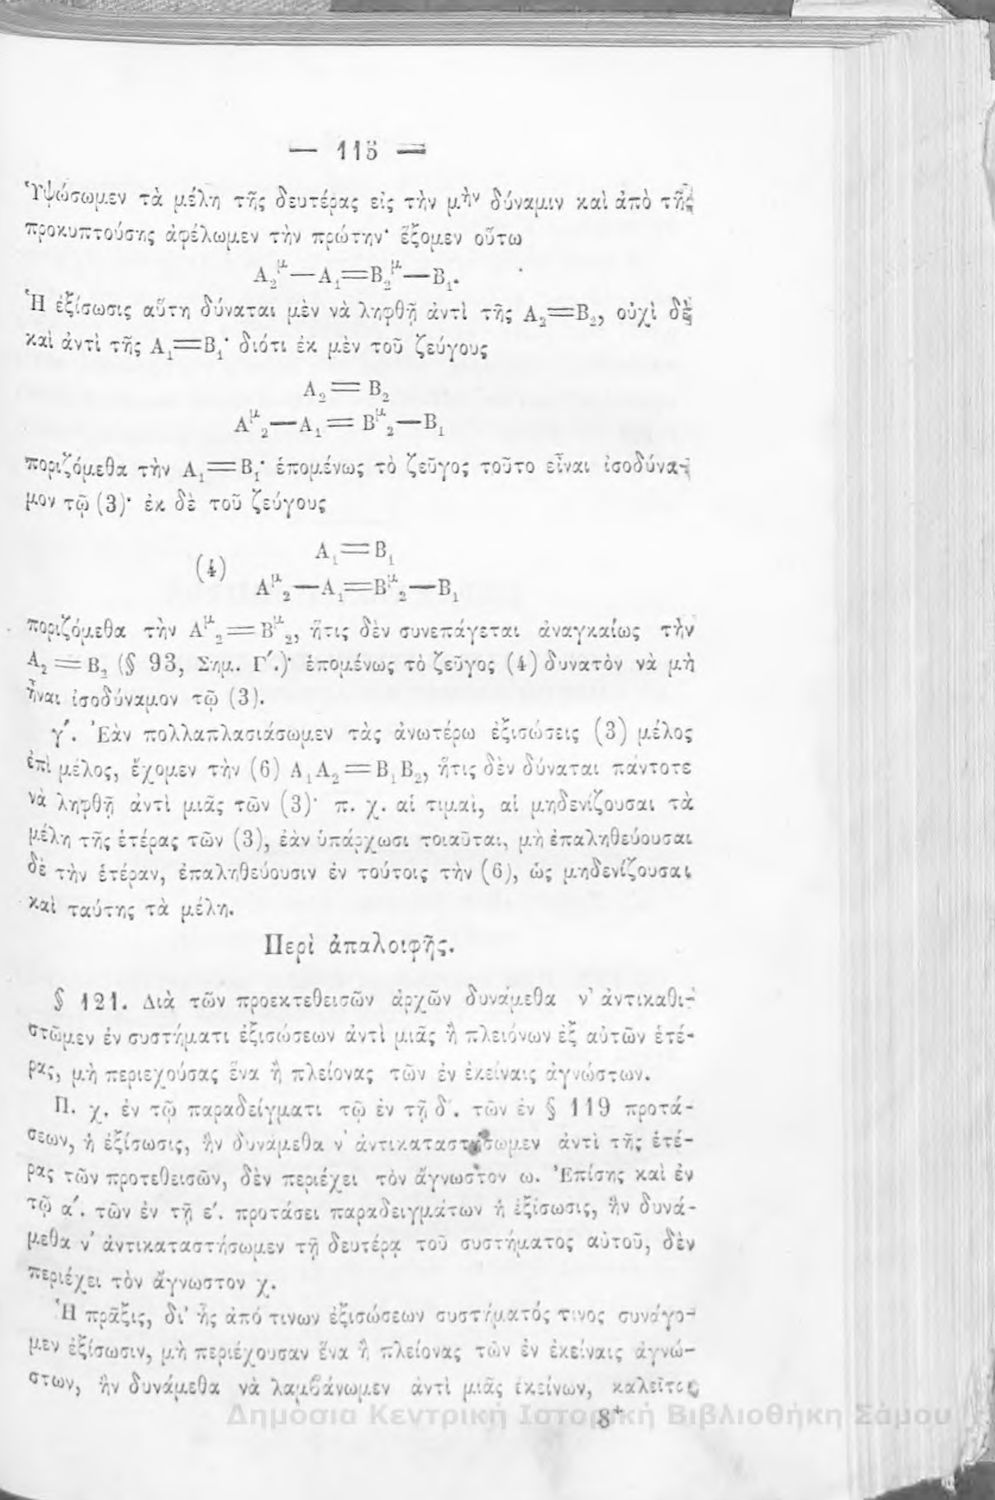 — 115 —
Ὑψώσωμεν τὰ μέλη τῆς δευτέρας εἰς τὴν μὴν δύναμιν καὶ ἀπὸ τῆς
προκυπτούσης ἀφέλωμεν τὴν πρώτην· ἕξομεν οὕτω
Α₂^μ—Α₁=Β₂^μ—Β₁.
Ἡ ἐξίσωσις αὕτη δύναται μὲν νὰ ληφθῇ ἀντὶ τῆς Α₂=Β₂, οὐχὶ δὲ
καὶ ἀντὶ τῆς Α₁=Β₁· διότι ἐκ μὲν τοῦ ζεύγους
Α₂= Β₂
Α^μ₂—Α₁= Β^μ₂—Β₁
ποριζόμεθα τὴν Α₁=Β₁· ἑπομένως τὸ ζεῦγος τοῦτο εἶναι ἰσοδύνα-
μον τῷ (3)· ἐκ δὲ τοῦ ζεύγους
Α₁=Β₁
(4)
Α^μ₂—Α₁=Β^μ₂—Β₁
ποριζόμεθα τὴν Α^μ₂=Β^μ₂, ἥτις δὲν συνεπάγεται ἀναγκαίως τὴν
Α₂=Β₂ (§ 93, Σημ. Γ΄.)· ἑπομένως τὸ ζεῦγος (4) δυνατὸν νὰ μὴ
ἦναι ἰσοδύναμον τῷ (3).
γ΄. Ἐὰν πολλαπλασιάσωμεν τὰς ἀνωτέρω ἐξισώσεις (3) μέλος
ἐπὶ μέλος, ἔχομεν τὴν (6) Α₁Α₂=Β₁Β₂, ἥτις δὲν δύναται πάντοτε
νὰ ληφθῇ ἀντὶ μιᾶς τῶν (3)· π. χ. αἱ τιμαὶ, αἱ μηδενίζουσαι τὰ
μέλη τῆς ἑτέρας τῶν (3), ἐὰν ὑπάρχωσι τοιαῦται, μὴ ἐπαληθεύουσαι
δὲ τὴν ἑτέραν, ἐπαληθεύουσιν ἐν τούτοις τὴν (6), ὡς μηδενίζουσαι
καὶ ταύτης τὰ μέλη.
Περὶ ἀπαλοιφῆς.
§ 121. Διὰ τῶν προεκτεθεισῶν ἀρχῶν δυνάμεθα ν' ἀντικαθι-
στῶμεν ἐν συστήματι ἐξισώσεων ἀντὶ μιᾶς ἢ πλειόνων ἐξ αὐτῶν ἑτέ-
ρας, μὴ περιεχούσας ἕνα ἢ πλείονας τῶν ἐν ἐκείναις ἀγνώστων.
Π. χ. ἐν τῷ παραδείγματι τῷ ἐν τῇ δ΄. τῶν ἐν § 119 προτά-
σεων, ἡ ἐξίσωσις, ἣν δυνάμεθα ν' ἀντικαταστήσωμεν ἀντὶ τῆς ἑτέ-
ρας τῶν προτεθεισῶν, δὲν περιέχει τὸν ἄγνωστον ω. Ἐπίσης καὶ ἐν
τῷ α΄. τῶν ἐν τῇ ε΄. προτάσει παραδειγμάτων ἡ ἐξίσωσις, ἣν δυνά-
μεθα ν' ἀντικαταστήσωμεν τῇ δευτέρᾳ τοῦ συστήματος αὐτοῦ, δὲν
περιέχει τὸν ἄγνωστον χ.
Ἡ πρᾶξις, δι' ἧς ἀπό τινων ἐξισώσεων συστήματός τινος συνάγο-
μεν ἐξίσωσιν, μὴ περιέχουσαν ἕνα ἢ πλείονας τῶν ἐν ἐκείναις ἀγνώ-
στων, ἣν δυνάμεθα νὰ λαμβάνωμεν ἀντὶ μιᾶς ἐκείνων, καλεῖται
8*
Δημόσια Κεντρική Ιστορική Βιβλιοθήκη Σάμου